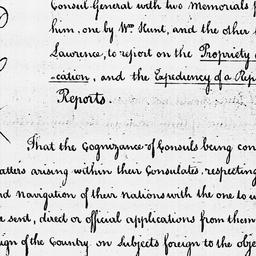 Consul General with two Memorials
him, one by Wm Hunt, and the other
Lawrence, to report on the Propriety
-cation, and the Expediency of a Rep
Reports.
That the Cognizance of Consuls being con
atters arising within their Consulates, respecting
nd navigation of their nations with the one to w
e sent, direct or official applications from them
ign of the Country on Subjects foreign to the obje